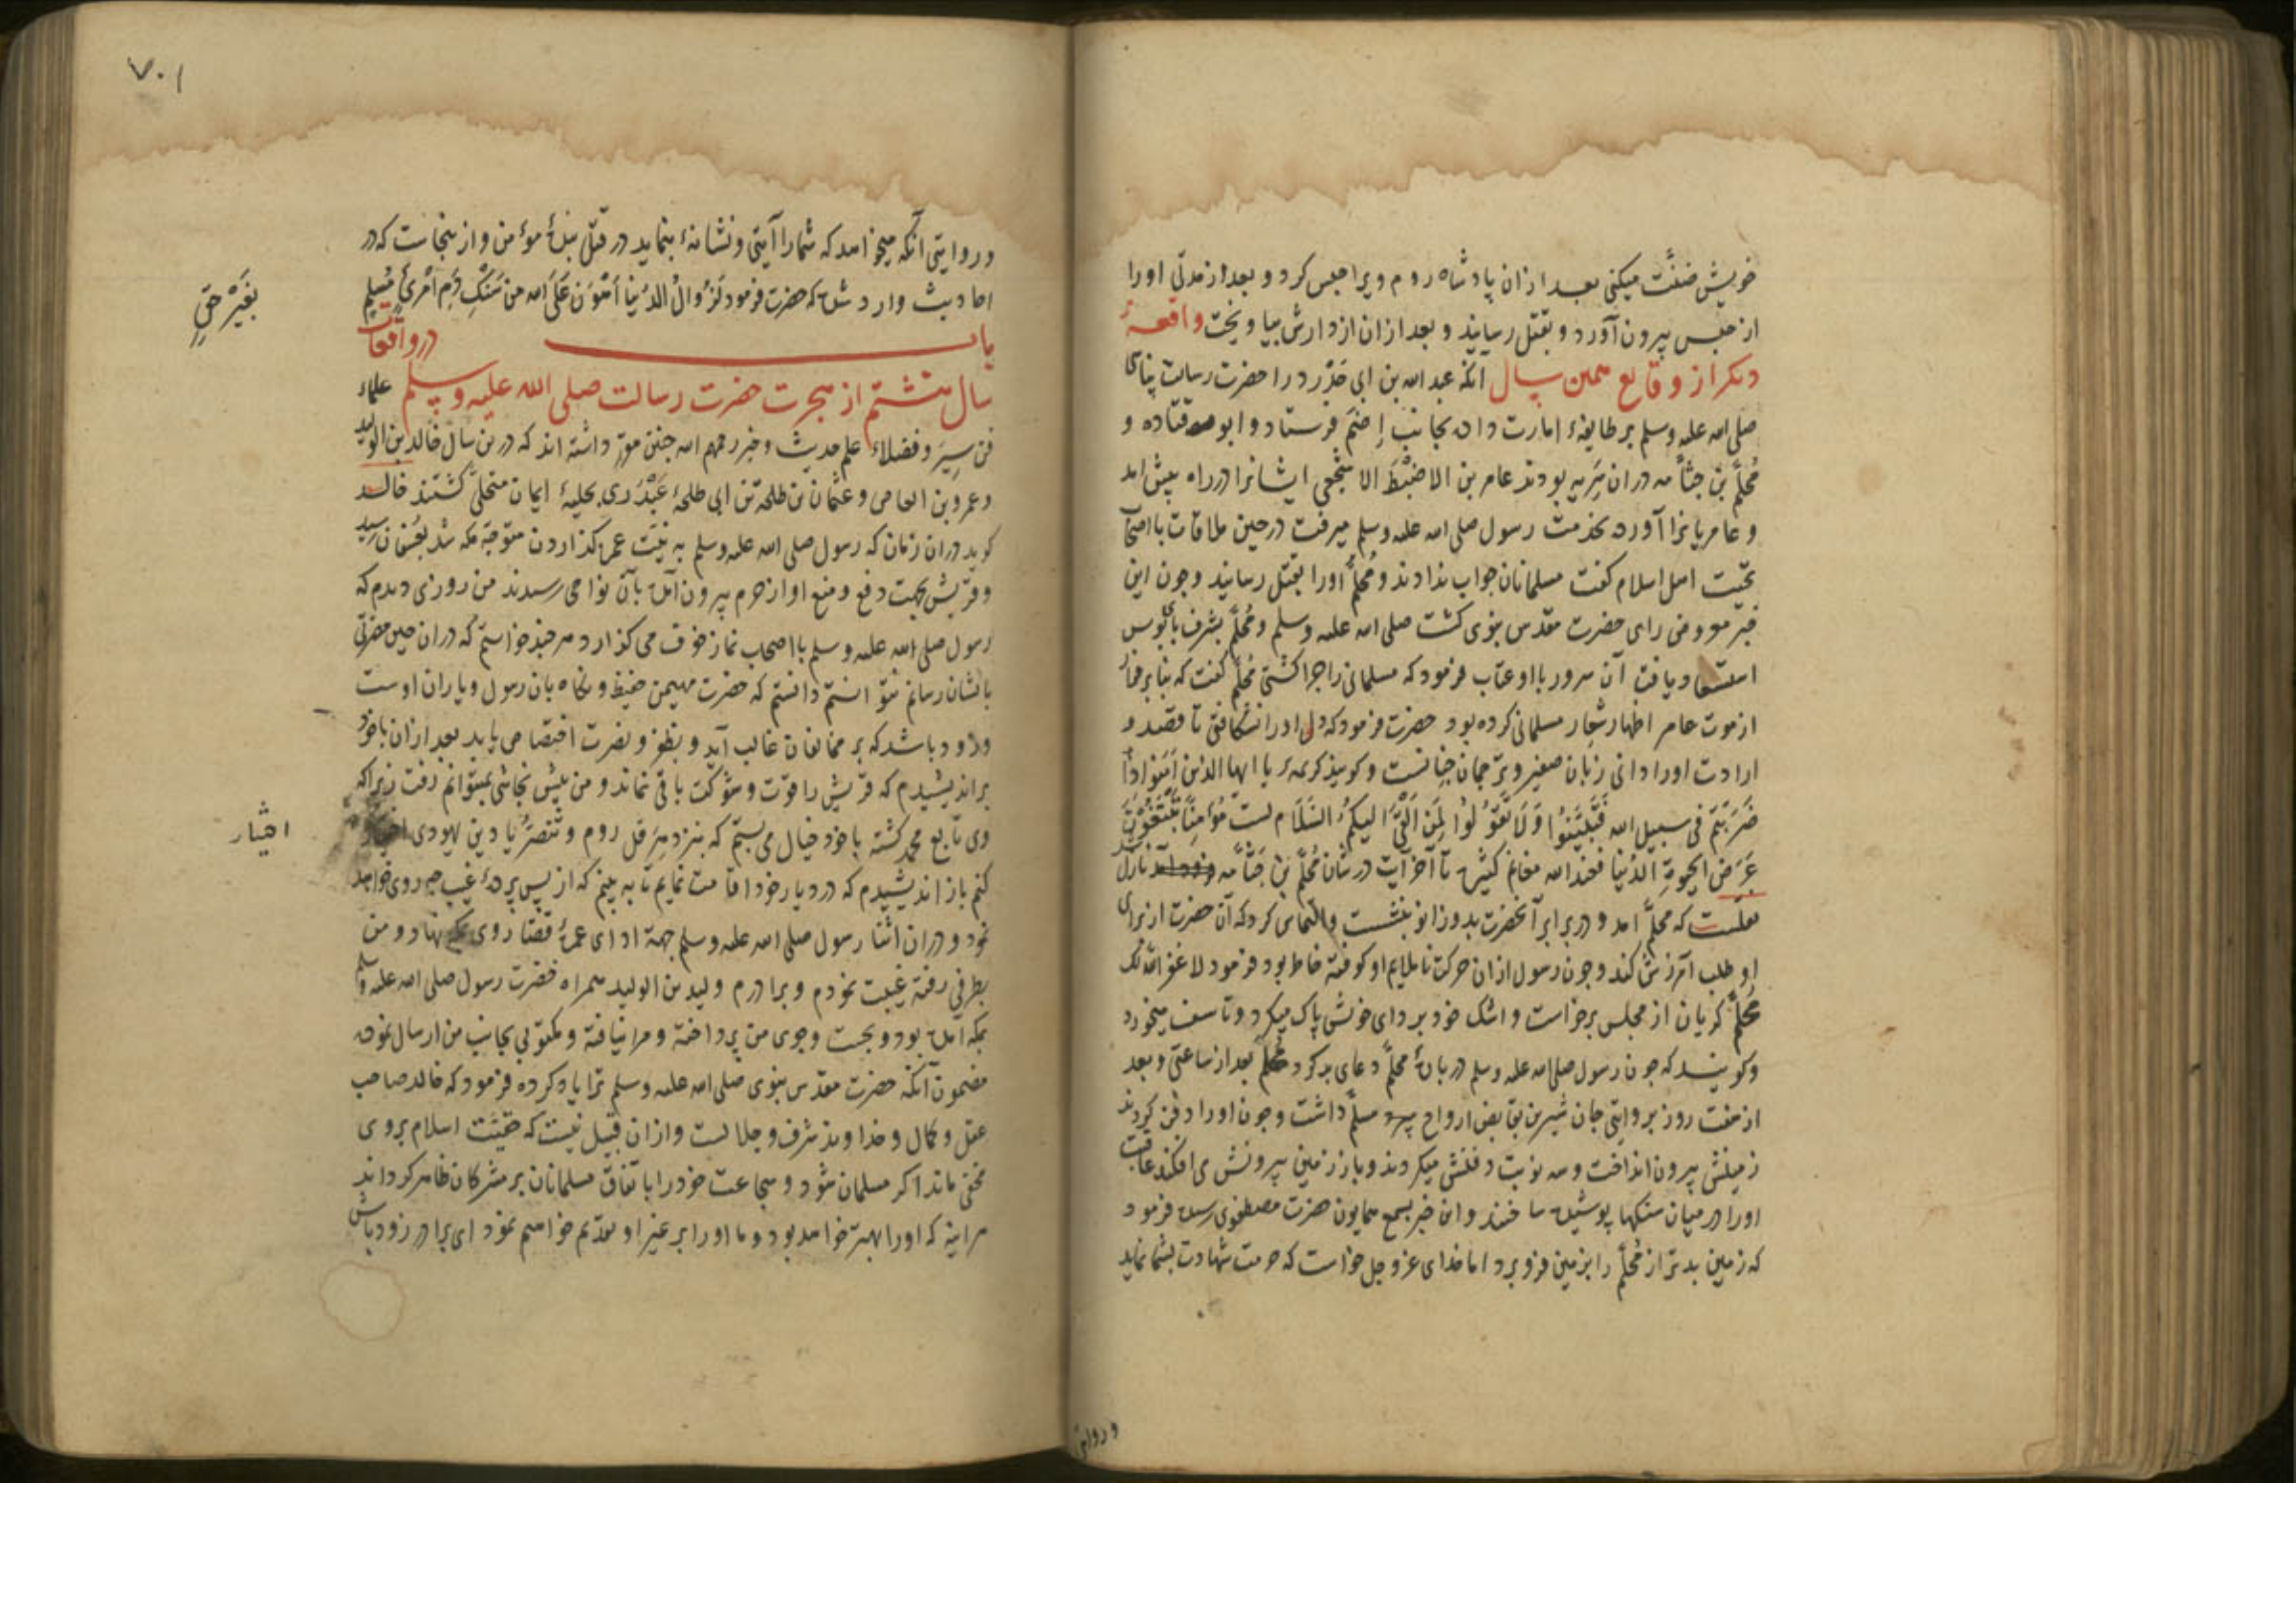 خویش ضنّت میکنی بعد ازان پادشاه روم ویرا حبس کرد و بعد از مدتی اورا
از حبس بیرون آورد و بقتل رسانید و بعد ازان از دارش بیاویخت واقعهٔ
دیکر از وقایع همین سال آنکه عبد الله بن ابی حَدْرَد را حضرت رسالت پناهی
صلی الله علیه وسلم بر طایفهٔ امارت داده بجانب إِضَم فرستاد و ابو قتاده و
مُحلّم بن جثّامه دران سَریه بودند عامر بن الاضبْطَ الاشجعی ایشانرا در راه پیش امد
و عامر با نرا آورده بخدمت رسول صلی الله علیه وسلم میرفت در حین ملاقات با اصحاب
تحیّت اهل اسلام کفت مسلمانان جواب ندادند و مُحلّم اورا بقتل رسانید و چون این
خبر معروض رای حضرت مقدّس نبوی کشت صلی الله علیه وسلم و مُحلّم بشرف پای بوس
استسعاد یافت آن سرور با او عتاب فرمود که مسلمانی را چرا کشتی مُحلّم کفت که بنابر فرار
از موت عامر اظهار شعار مسلمانی کرده بود حضرت فرمود که دل اورا نشکافتی تا قصد و
ارادت اورا دانی زبان صغیر و ترجمان جنانست و کویند کریمهٔ یا ایها الذین آمنوا اذا
ضَرَبْتُم فی سبیل الله فَتَبَیَّنُوا وَلَا تَقُولُوا لِمَن اَلْقَیٰ الیکمُ السَّلَام لست مُؤمِنًا تَبْتَغُونَ
عَرَضَ الحیوةِ الدُنیا فعند الله مغانم کثیرة تا آخر آیت در شان مُحلّم بن جَثّامه نازل شد
نقلست که محلّم امد و در برابر آنحضرت بدو زانو بنشست والتماس کرد که آن حضرت از برای
او طلب آمرزش کند و چون رسول ازان حرکت ناملایم او کوفته خاطر بود فرمود لا غفر الله لک
مُحلّم کریان از مجلس برخاست و اشک خود بردای خویش پاک میکرد و تاسف میخورد
و کویند که چون رسول صلی الله علیه وسلم در بارهٔ محلّم دعای بد کرد محلّم بعد از ساعتی و بعد
از هفت روز بروایتی جان شیرین بقابض ارواح سپرد مسلّم داشت و چون اورا دفن کردند
زمینش بیرون انداخت و سه نوبت دفنش میکردند و باز زمین بیرونش می افکند عاقبت
اورا در میان سنکها پوشیده ساختند و این خبر بسمع همایون حضرت مصطفوی رسید فرمود
که زمین بدتر از مُحلّم را بزمین فرو برد اما خدای عز وجل خواست که حرمت شهادت بشما نماید
و روایتی
۷۰۱
و روایتی آنکه میخواهد که شمارا آیتی و نشانهٔ بنماید در قتل بندهٔ مؤمن و ازینجاست که در
احادیث وارد شده که حضرت فرمود لَزَوالُ الدُنیا اَهْوَن عَلَی الله من سَفکِ دَمِ امْرِئٍ مُسْلِمٍ
بغَیرْ حَقٍ
باب در واقعات
سال هشتم از هجرت حضرت رسالت صلی الله علیه وسلم علماء
فن سِیَر و فضلاء علم حدیث و خبر رحمهم الله چنین مقرّر داشته اند که درین سال خالد بن الولید
و عمرو بن العاص و عثمان بن طلحة بن ابی طلحهٔ عَبْدَری بحلیهٔ ایمان متحلّی کشتند خالد
کوید دران زمان که رسول صلی الله علیه وسلم به نیّت عمره کذاردن متوجّه مکه شد بعُسْفان رسید
و قریش بجهت دفع و منع او از حرم بیرون آمده بآن نواحی رسیدند من روزی دیدم که
رسول صلی الله علیه وسلم با اصحاب نماز خوف می کذارد هر چند خواستم که دران حین مضرّتی
بایشان رسانم نتوانستم دانستم که حضرت مهیمن حفیظ و نکاه بان رسول و یاران اوست
ولاود باشد که بر مخالفان غالب آید و بظفر و نصرت اختصاص یابد بعد ازان با خود
براندیشیدم که قریش را قوّت و شوکت باقی نماند و من پیش نجاشی نمیتوانم رفت زیرا که
وی تابع محمد کشته با خود خیال می بستم که بنزد هِرَقل روم و تنصّر یا دین یهودی اختیار
اختیار
کنم باز اندیشیدم که در دیار خود اقامت نمایم تا به بینم که از پس پردهٔ غیب چه روی خواهد
نمود و دران اثنا رسول صلی الله علیه وسلم جهة ادای عمرهٔ قضا روی بمکه نهاد و من
بطرفی رفته غیبت نمودم و برادرم ولید بن الولید همراه حضرت رسول صلی الله علیه وسلم
بمکه آمده بود و بجست وجوی من پرداخته و مرا نیافته و مکتوبی بجانب من ارسال نموده
مضمون آنکه حضرت مقدّس نبوی صلی الله علیه وسلم ترا یاد کرده فرمود که خالد صاحب
عقل و کمال و خداوند شرف و جلالست و ازان قبیل نیست که حقیّت اسلام بر وی
مخفی ماند اکر مسلمان شود و شجاعت خود را باتفاق مسلمانان بر مشرکان ظاهر کرداند
هر آینه که اورا بهتر خواهد بود و ما اورا بر غیر او تقدیم خواهیم نمود ای برادر زود باش